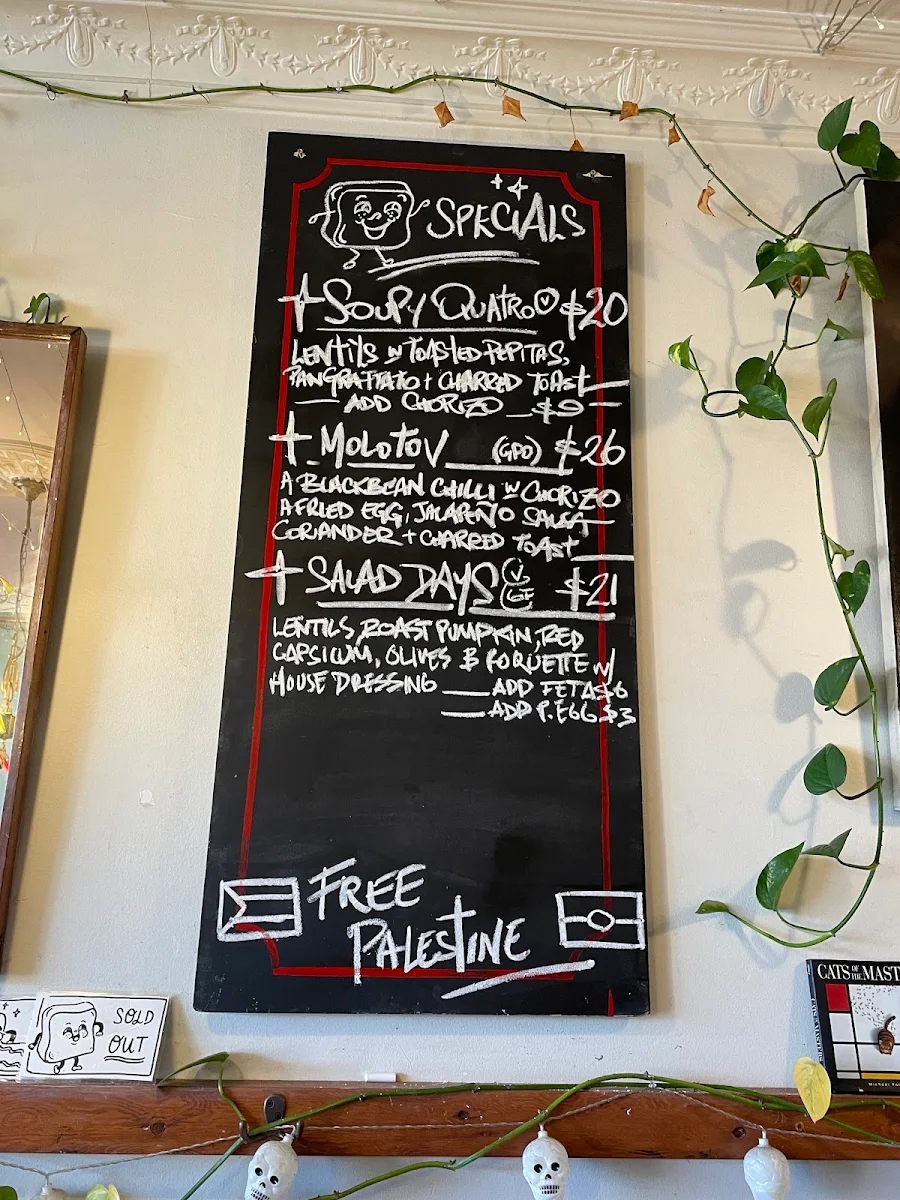 SPECIALS
SOUPY QUATRO V $20
LENTILS W TOASTED PEPITAS,
PANGRATTATO + CHARRED TOAST
ADD CHORIZO $9
MOLOTOV (GPO) $26
A BLACKBEAN CHILLI W CHORIZO
A FRIED EGG, JALAPEÑO SALSA
CORIANDER + CHARRED TOAST
SALAD DAYS V GF $21
LENTILS, ROAST PUMPKIN, RED
CAPSICUM, OLIVES & ROQUETTE W/
HOUSE DRESSING ADD FETA $6
ADD P. EGG $3
FREE
PALESTINE
SOLD
OUT
CATS OF THE MAST